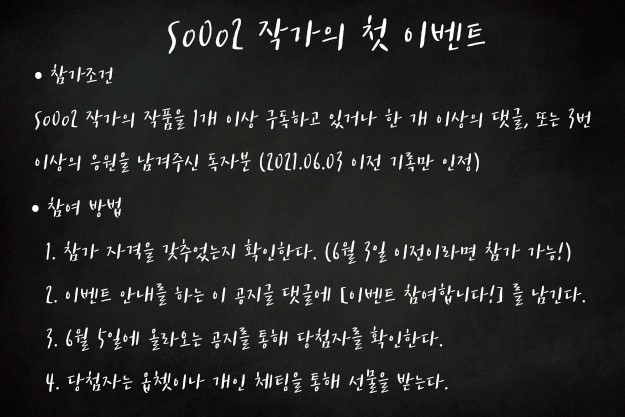 SoOo2 작가의 첫 이벤트
• 참가조건
SoOo2 작가의 작품을 1개 이상 구독하고 있거나 한 개 이상의 댓글, 또는 3번
이상의 응원을 남겨주신 독자분 (2021.06.03 이전 기록만 인정)
• 참여 방법
1. 참가 자격을 갖추었는지 확인한다. (6월 3일 이전이라면 참가 가능!)
2. 이벤트 안내를 하는 이 공지글 댓글에 [이벤트 참여합니다!] 를 남긴다.
3. 6월 5일에 올라오는 공지를 통해 당첨자를 확인한다.
4. 당첨자는 옵챗이나 개인 체팅을 통해 선물을 받는다.